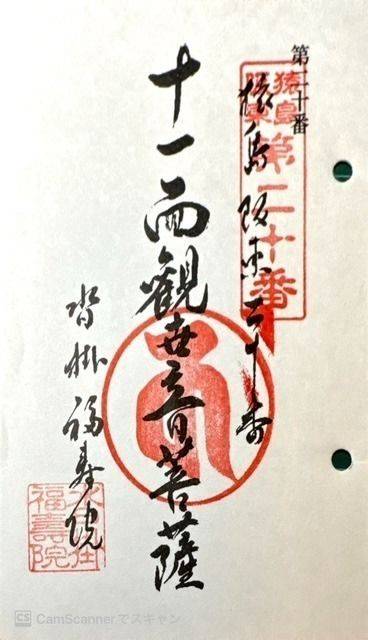 第二十番
猿島
阪東
第二十番
猿島阪東二十番
十一面觀世音菩薩
沓掛福寿院
福壽院
CS CamScannerでスキャン